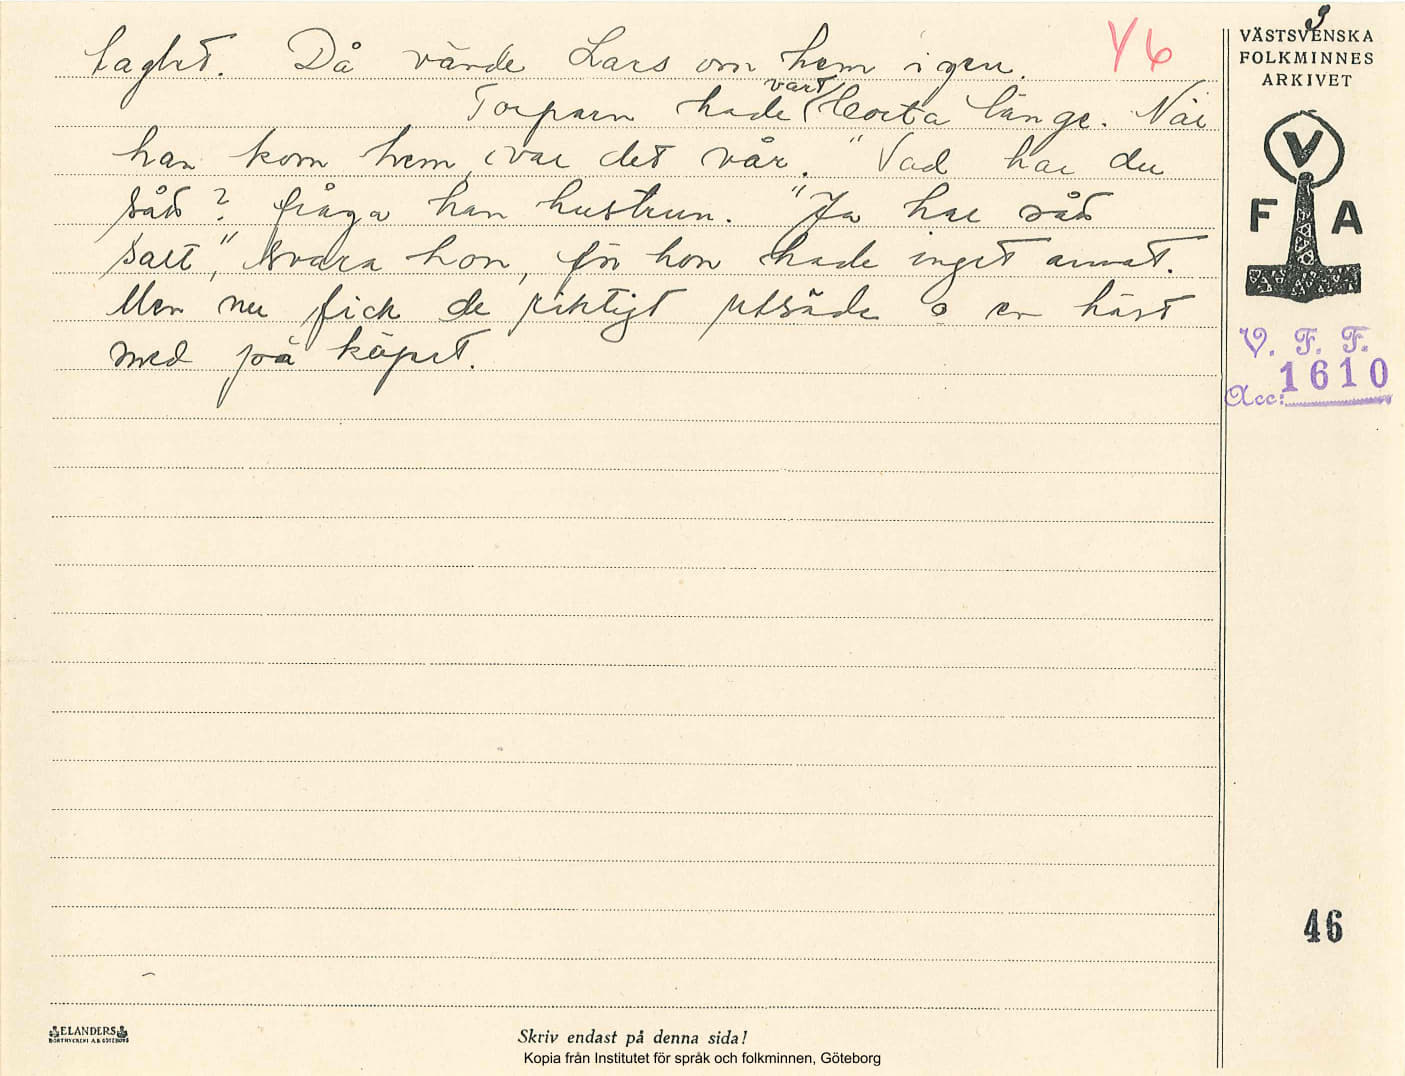 taget. Då vände Lars om hem igen.
Y6
Torparn hade vart borta länge. När
han kom hem, var det vår. "Vad har du
sått? fråga han hustrun. "Ja har sått
salt," svara hon, för hon hade inget annat.
Men nu fick de riktigt utsäde o en häst
med på köpet.
3
VÄSTSVENSKA
FOLKMINNES
ARKIVET
V
F A
V. F. F.
Acc: 1610
46
ELANDERS
BOKTRYCKERI A.B. GÖTEBORG
Skriv endast på denna sida!
Kopia från Institutet för språk och folkminnen, Göteborg